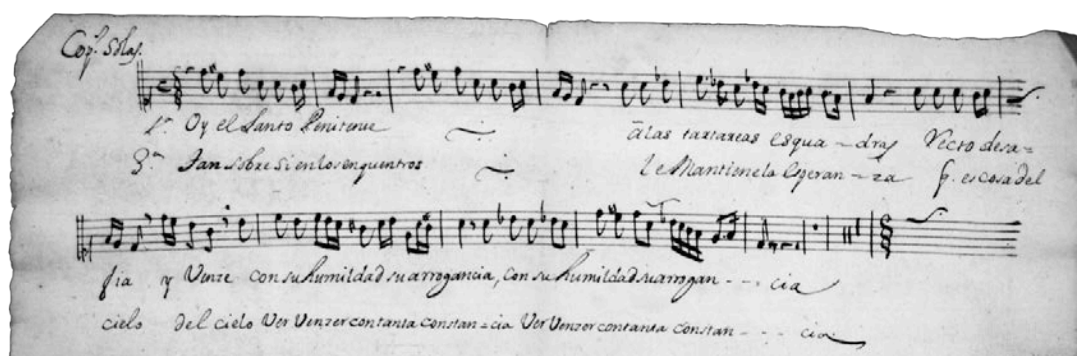 Cop.s Solas.
1.ª Oy el Santo Penitente a las tartareas esqua - dras Recto desa=
3.ª Tan sobre si en los enquentros le Mantiene la Esperan - za q. es cosa del
fia y Venze con su humildad su arrogancia, con su humildad su arrogan - - - cia
cielo del cielo Ver Venzer con tanta constan = cia Ver Venzer con tanta constan - - - cia